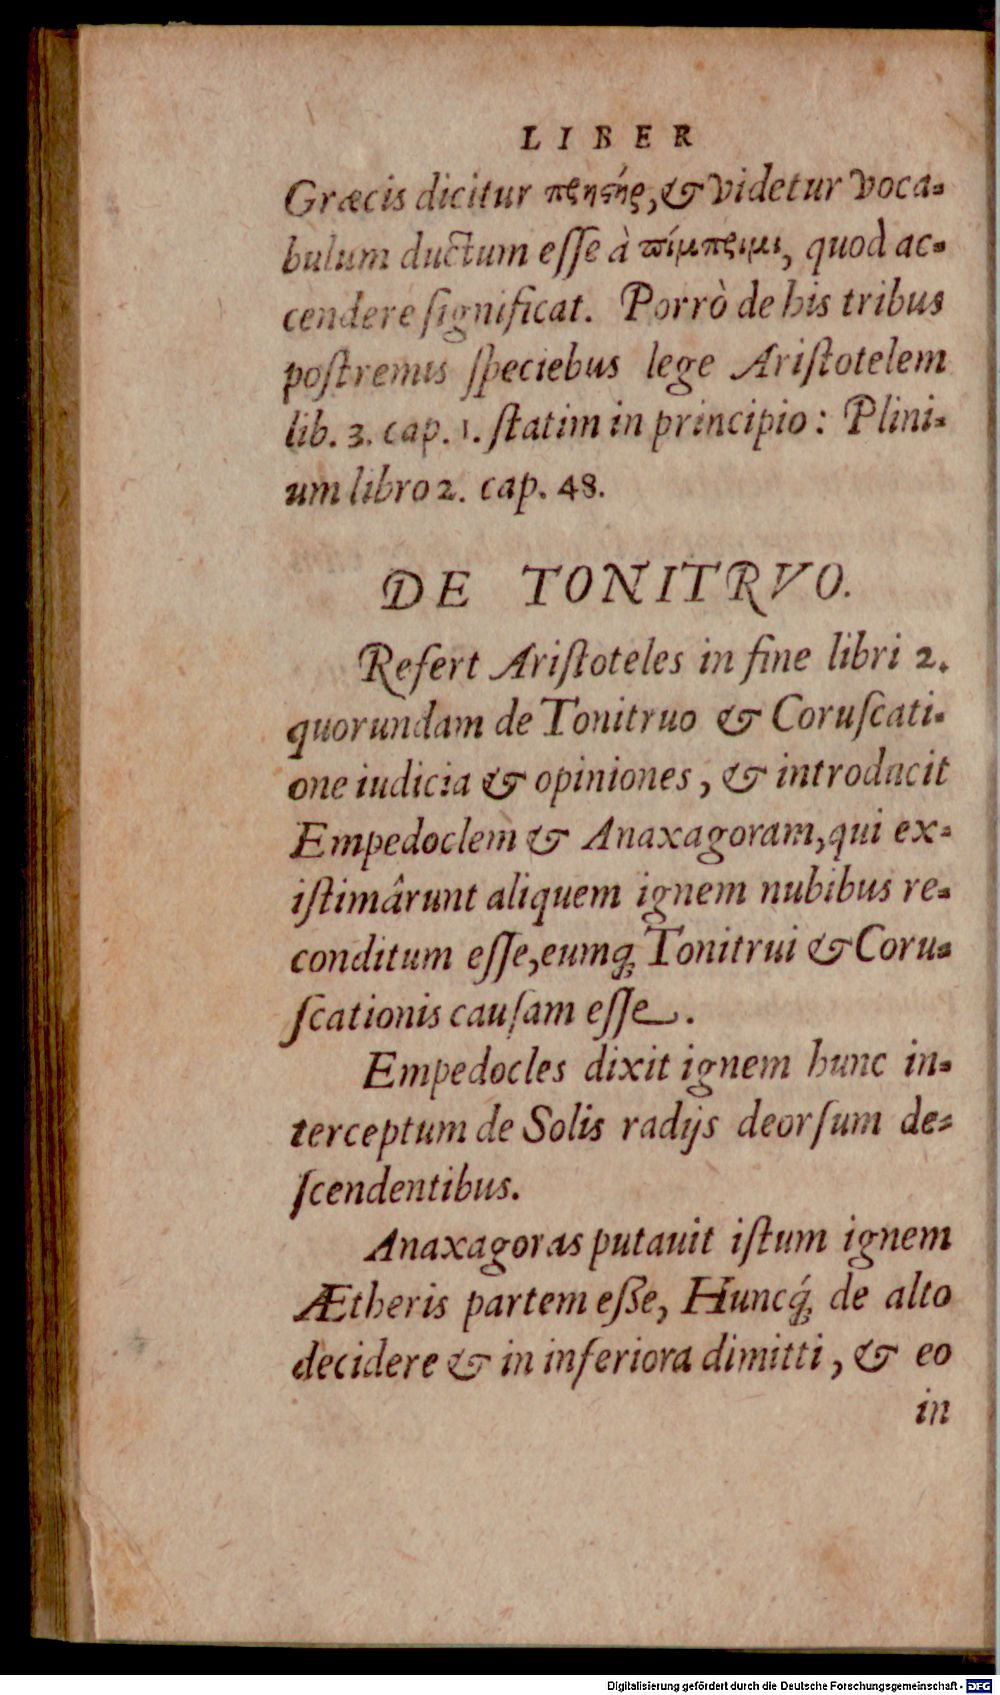 LIBER
Græcis dicitur πρηστήρ, & videtur voca-
bulum ductum eſſe à πίμπρημι, quod ac-
cendere ſignificat. Porrò de his tribus
poſtremis ſpeciebus lege Ariſtotelem
lib. 3. cap. 1. ſtatim in principio: Plini-
um libro 2. cap. 48.
DE TONITRVO.
Refert Ariſtoteles in fine libri 2.
quorundam de Tonitruo & Coruſcati-
one iudicia & opiniones, & introducit
Empedoclem & Anaxagoram, qui ex-
iſtimârunt aliquem ignem nubibus re-
conditum eſſe, eumq́; Tonitrui & Coru-
ſcationis cauſam eſſe.
Empedocles dixit ignem hunc in-
terceptum de Solis radijs deorſum de-
ſcendentibus.
Anaxagoras putauit iſtum ignem
Ætheris partem eſſe, Huncq́; de alto
decidere & in inferiora dimitti, & eo
in
Digitalisierung gefördert durch die Deutsche Forschungsgemeinschaft - DFG